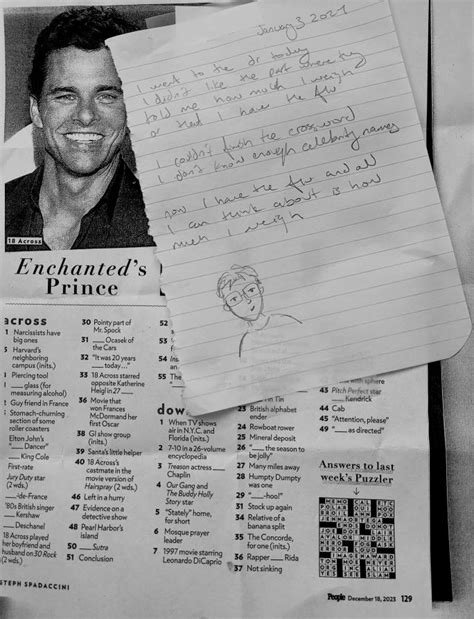 January 3 2024
I went to the dr today
I didn't like the part where they
told me how much I weigh
or that I have the flu
I couldn't finish the crossword
I don't know enough celebrity names
now I have the flu and all
I can think about is how
much I weigh
18 Across
Enchanted's
Prince
across
1 Narcissists have
big ones
5 Harvard's
neighboring
campus (inits.)
Piercing tool
___ glass (for
measuring alcohol)
Guy friend in France
Stomach-churning
section of some
roller coasters
Elton John's
"___ Dancer"
___ King Cole
First-rate
Jury Duty star
(2 wds.)
___-de-France
'80s British singer
___ Kershaw
___ Deschanel
played
her boyfriend and
husband on 30 Rock
(2 wds.)
30 Pointy part of
Mr. Spock
31 ___ Ocasek of
the Cars
32 "It was 20 years
___ today..."
33 18 Across starred
opposite Katherine
Heigl in 27 ___
36 Movie that
won Frances
McDormand her
first Oscar
38 GI show group
(inits.)
39 Santa's little helper
40 18 Across's
castmate in the
movie version of
Hairspray (2 wds.)
46 Left in a hurry
47 Evidence on a
detective show
48 Pearl Harbor's
island
50 ___ Sutra
51 Conclusion
52
53
54
55
down
1 When TV shows
air in N.Y.C. and
Florida (inits.)
2 7-10 in a 26-volume
encyclopedia
3 Treason actress
Chaplin
4 Our Gang and
The Buddy Holly
Story star
5 "Stately" home,
for short
6 Mosque prayer
leader
7 1997 movie starring
Leonardo DiCaprio
in Tin
23 British alphabet
ender
24 Rowboat rower
25 Mineral deposit
26 "___ the season to
be jolly"
27 Many miles away
28 Humpty Dumpty
was one
29 "___-hoo!"
31 Stock up again
34 Relative of a
banana split
35 The Concorde,
for one (inits.)
36 Rapper ___ Rida
37 Not sinking
with sphere
43 Pitch Perfect star
___ Kendrick
44 Cab
45 "Attention, please"
49 "___ as directed"
Answers to last
week's Puzzler
STEPH SPADACCINI
People December 18, 2023 129